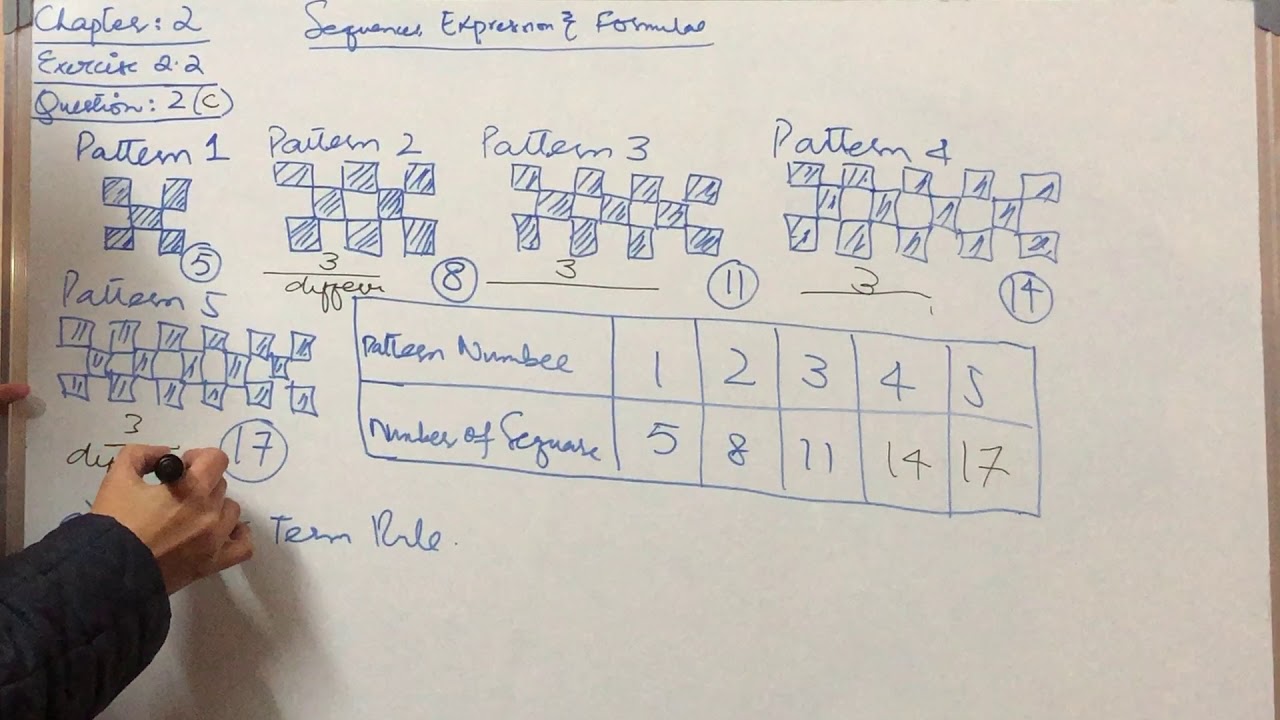 Chapter: 2
Sequences Expression & Formulae
Exercise 2.2
Question: 2 (c)
Pattern 1
Pattern 2
Pattern 3
Pattern 4
5
3
differen
8
3
11
3
14
Pattern 5
3
17
Pattern Number 1 2 3 4 5
Number of Sequare 5 8 11 14 17
Term Rule.